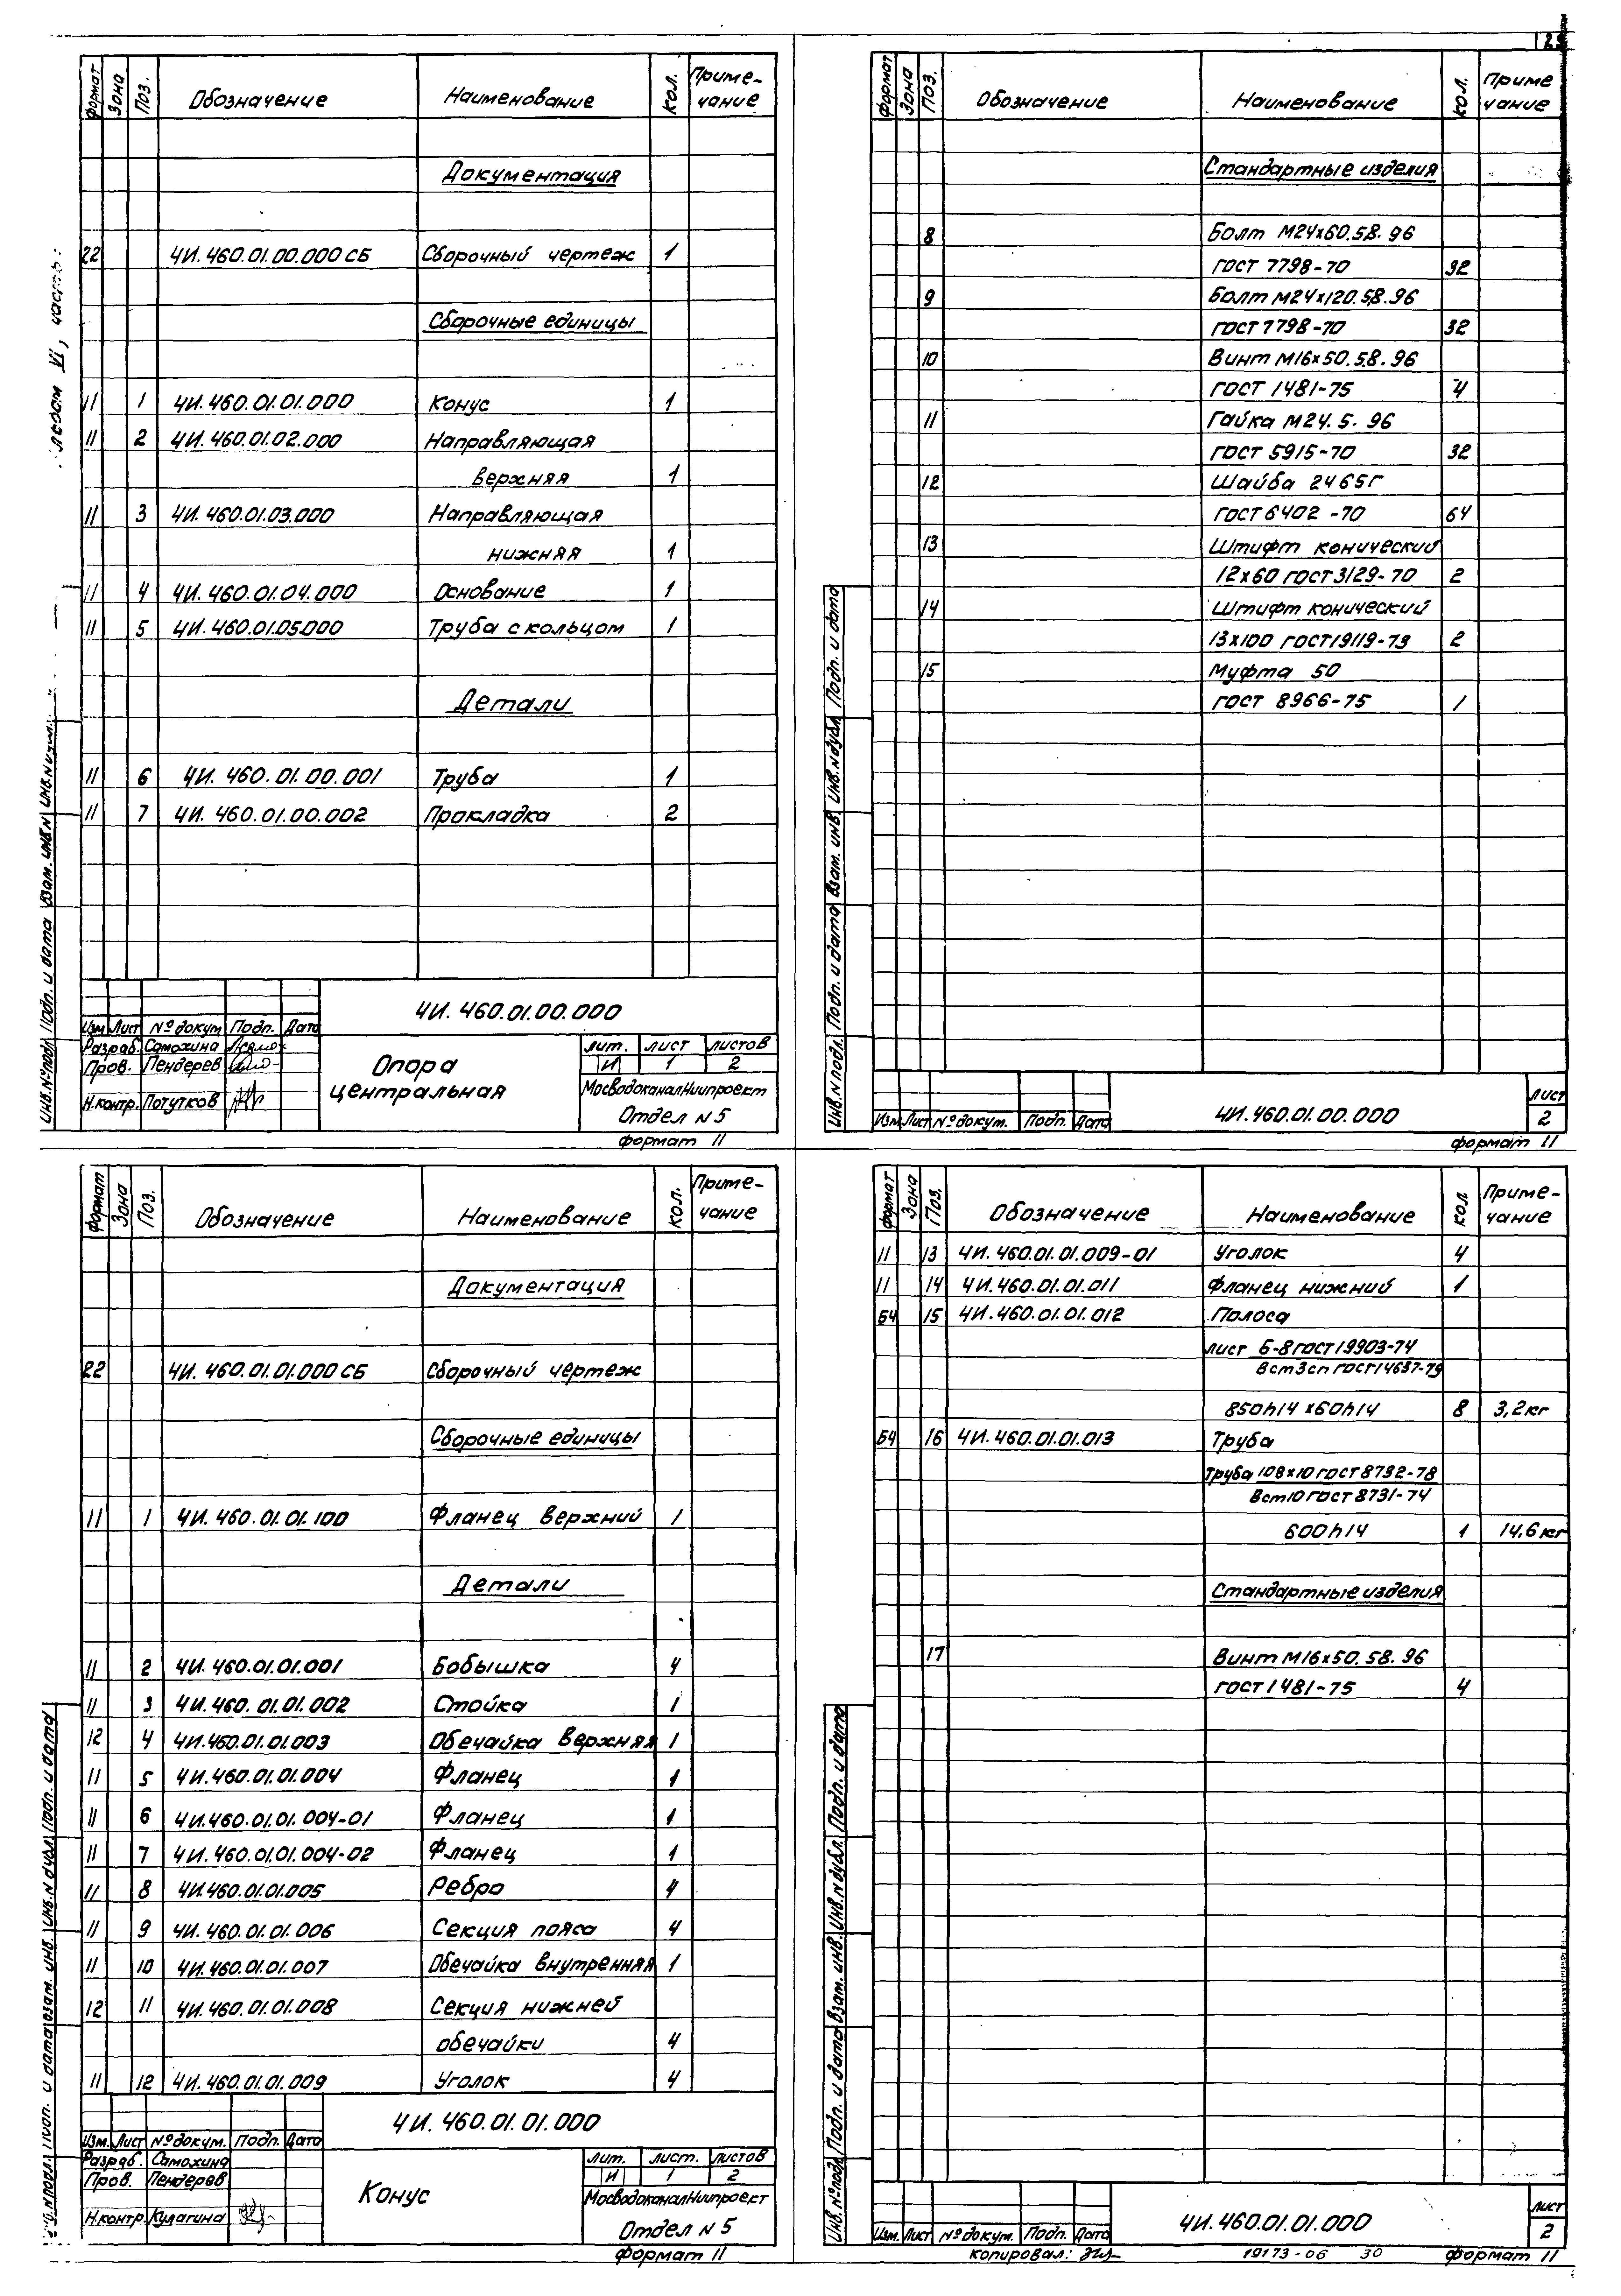 29
формат Зона Поз. Обозначение Наименование кол. Приме-
чание
Документация
22 4И.460.01.00.000 СБ Сборочный чертеж 1
Сборочные единицы
11 1 4И.460.01.01.000 Конус 1
11 2 4И.460.01.02.000 Направляющая
верхняя 1
11 3 4И.460.01.03.000 Направляющая
нижняя 1
11 4 4И.460.01.04.000 Основание 1
11 5 4И.460.01.05.000 Труба с кольцом 1
Детали
11 6 4И.460.01.00.001 Труба 1
11 7 4И.460.01.00.002 Прокладка 2
4И.460.01.00.000
Изм Лист № докум Подп. Дата
Разраб. Самохина
Пров. Пендерев
Н.контр. Потутков
Опора
центральная
лит. лист листов
И 1 2
МосводоканалНиипроект
Отдел N 5
формат 11
Инв.№подл. Подп. и дата Взам. инв.N
формат Зона Поз. Обозначение Наименование кол. Приме
чание
Стандартные изделия
8 Болт М24х60.58.96
ГОСТ 7798-70 32
9 Болт М24х120.58.96
ГОСТ 7798-70 32
10 Винт М16х50.58.96
ГОСТ 1481-75 4
11 Гайка М24.5.96
ГОСТ 5915-70 32
12 Шайба 24 65Г
ГОСТ 6402-70 64
13 Штифт конический
12х60 ГОСТ 3129-70 2
14 Штифт конический
13х100 ГОСТ 19119-73 2
15 Муфта 50
ГОСТ 8966-75 1
Инв.N подл. Подп. и дата Взам. инв. Инв.N дубл Подп. и дата
Изм. Лист № докум. Подп. Дата
4И.460.01.00.000
Лист
2
формат 11
формат Зона Поз. Обозначение Наименование кол. Приме-
чание
Документация
22 4И.460.01.01.000 СБ Сборочный чертеж
Сборочные единицы
11 1 4И.460.01.01.100 Фланец верхний 1
Детали
11 2 4И.460.01.01.001 Бобышка 4
11 3 4И.460.01.01.002 Стойка 1
12 4 4И.460.01.01.003 Обечайка верхняя 1
11 5 4И.460.01.01.004 Фланец 1
11 6 4И.460.01.01.004-01 Фланец 1
11 7 4И.460.01.01.004-02 Фланец 1
11 8 4И.460.01.01.005 Ребро 4
11 9 4И.460.01.01.006 Секция пояса 4
11 10 4И.460.01.01.007 Обечайка внутренняя 1
12 11 4И.460.01.01.008 Секция нижней
обечайки 4
11 12 4И.460.01.01.009 Уголок 4
4И.460.01.01.000
Изм. Лист № докум. Подп. Дата
Разраб. Самохина
Пров. Пендерев
Н.контр. Кулагина
Конус
лит. лист. листов
И 1 2
МосводоканалНиипроект
Отдел N 5
формат 11
Подп. и дата Взам. инв. Инв.N дубл. Подп. и дата
формат Зона Поз. Обозначение Наименование кол. Приме-
чание
11 13 4И.460.01.01.009-01 Уголок 4
11 14 4И.460.01.01.011 Фланец нижний 1
Б4 15 4И.460.01.01.012 Полоса
Лист Б-8 ГОСТ 19903-74
Вст3сп ГОСТ 14637-79
850h14 х60h14 8 3,2кг
Б4 16 4И.460.01.01.013 Труба
Труба 108х10 ГОСТ 8732-78
Вст10 ГОСТ 8731-74
600h14 1 14.6 кг
Стандартные изделия
17 Винт М16х50.58.96
ГОСТ 1481-75 4
Инв.№подл. Подп. и дата Взам. инв. Инв.N дубл. Подп. и дата
Изм. Лист № докум. Подп. Дата
4И.460.01.01.000
Лист
2
копировал:
19173-06 30
формат 11